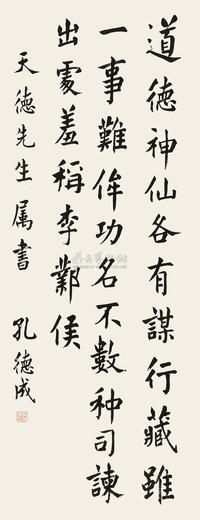 道德神仙各有謀行藏雖
一事難侔功名不數种司諫
出處羞稱李鄴侯
天德先生属書 孔德成